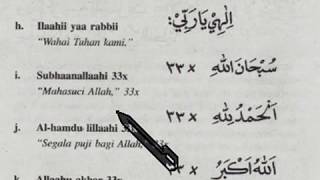 h. Ilaahii yaa rabbii إِلٰهِيْ يَارَبِّيْ:
"Wahai Tuhan kami,"
i. Subhaanallaahi 33x سُبْحَانَ اللهِ ٣٣ x
"Mahasuci Allah," 33x
j. Al-hamdu lillaahi 33x اَلْحَمْدُ لِلهِ ٣٣ x
"Segala puji bagi Allah, 33x
k. Allaahu akbar 33x اَللهُ اَكْبَرُ ٣٣ x